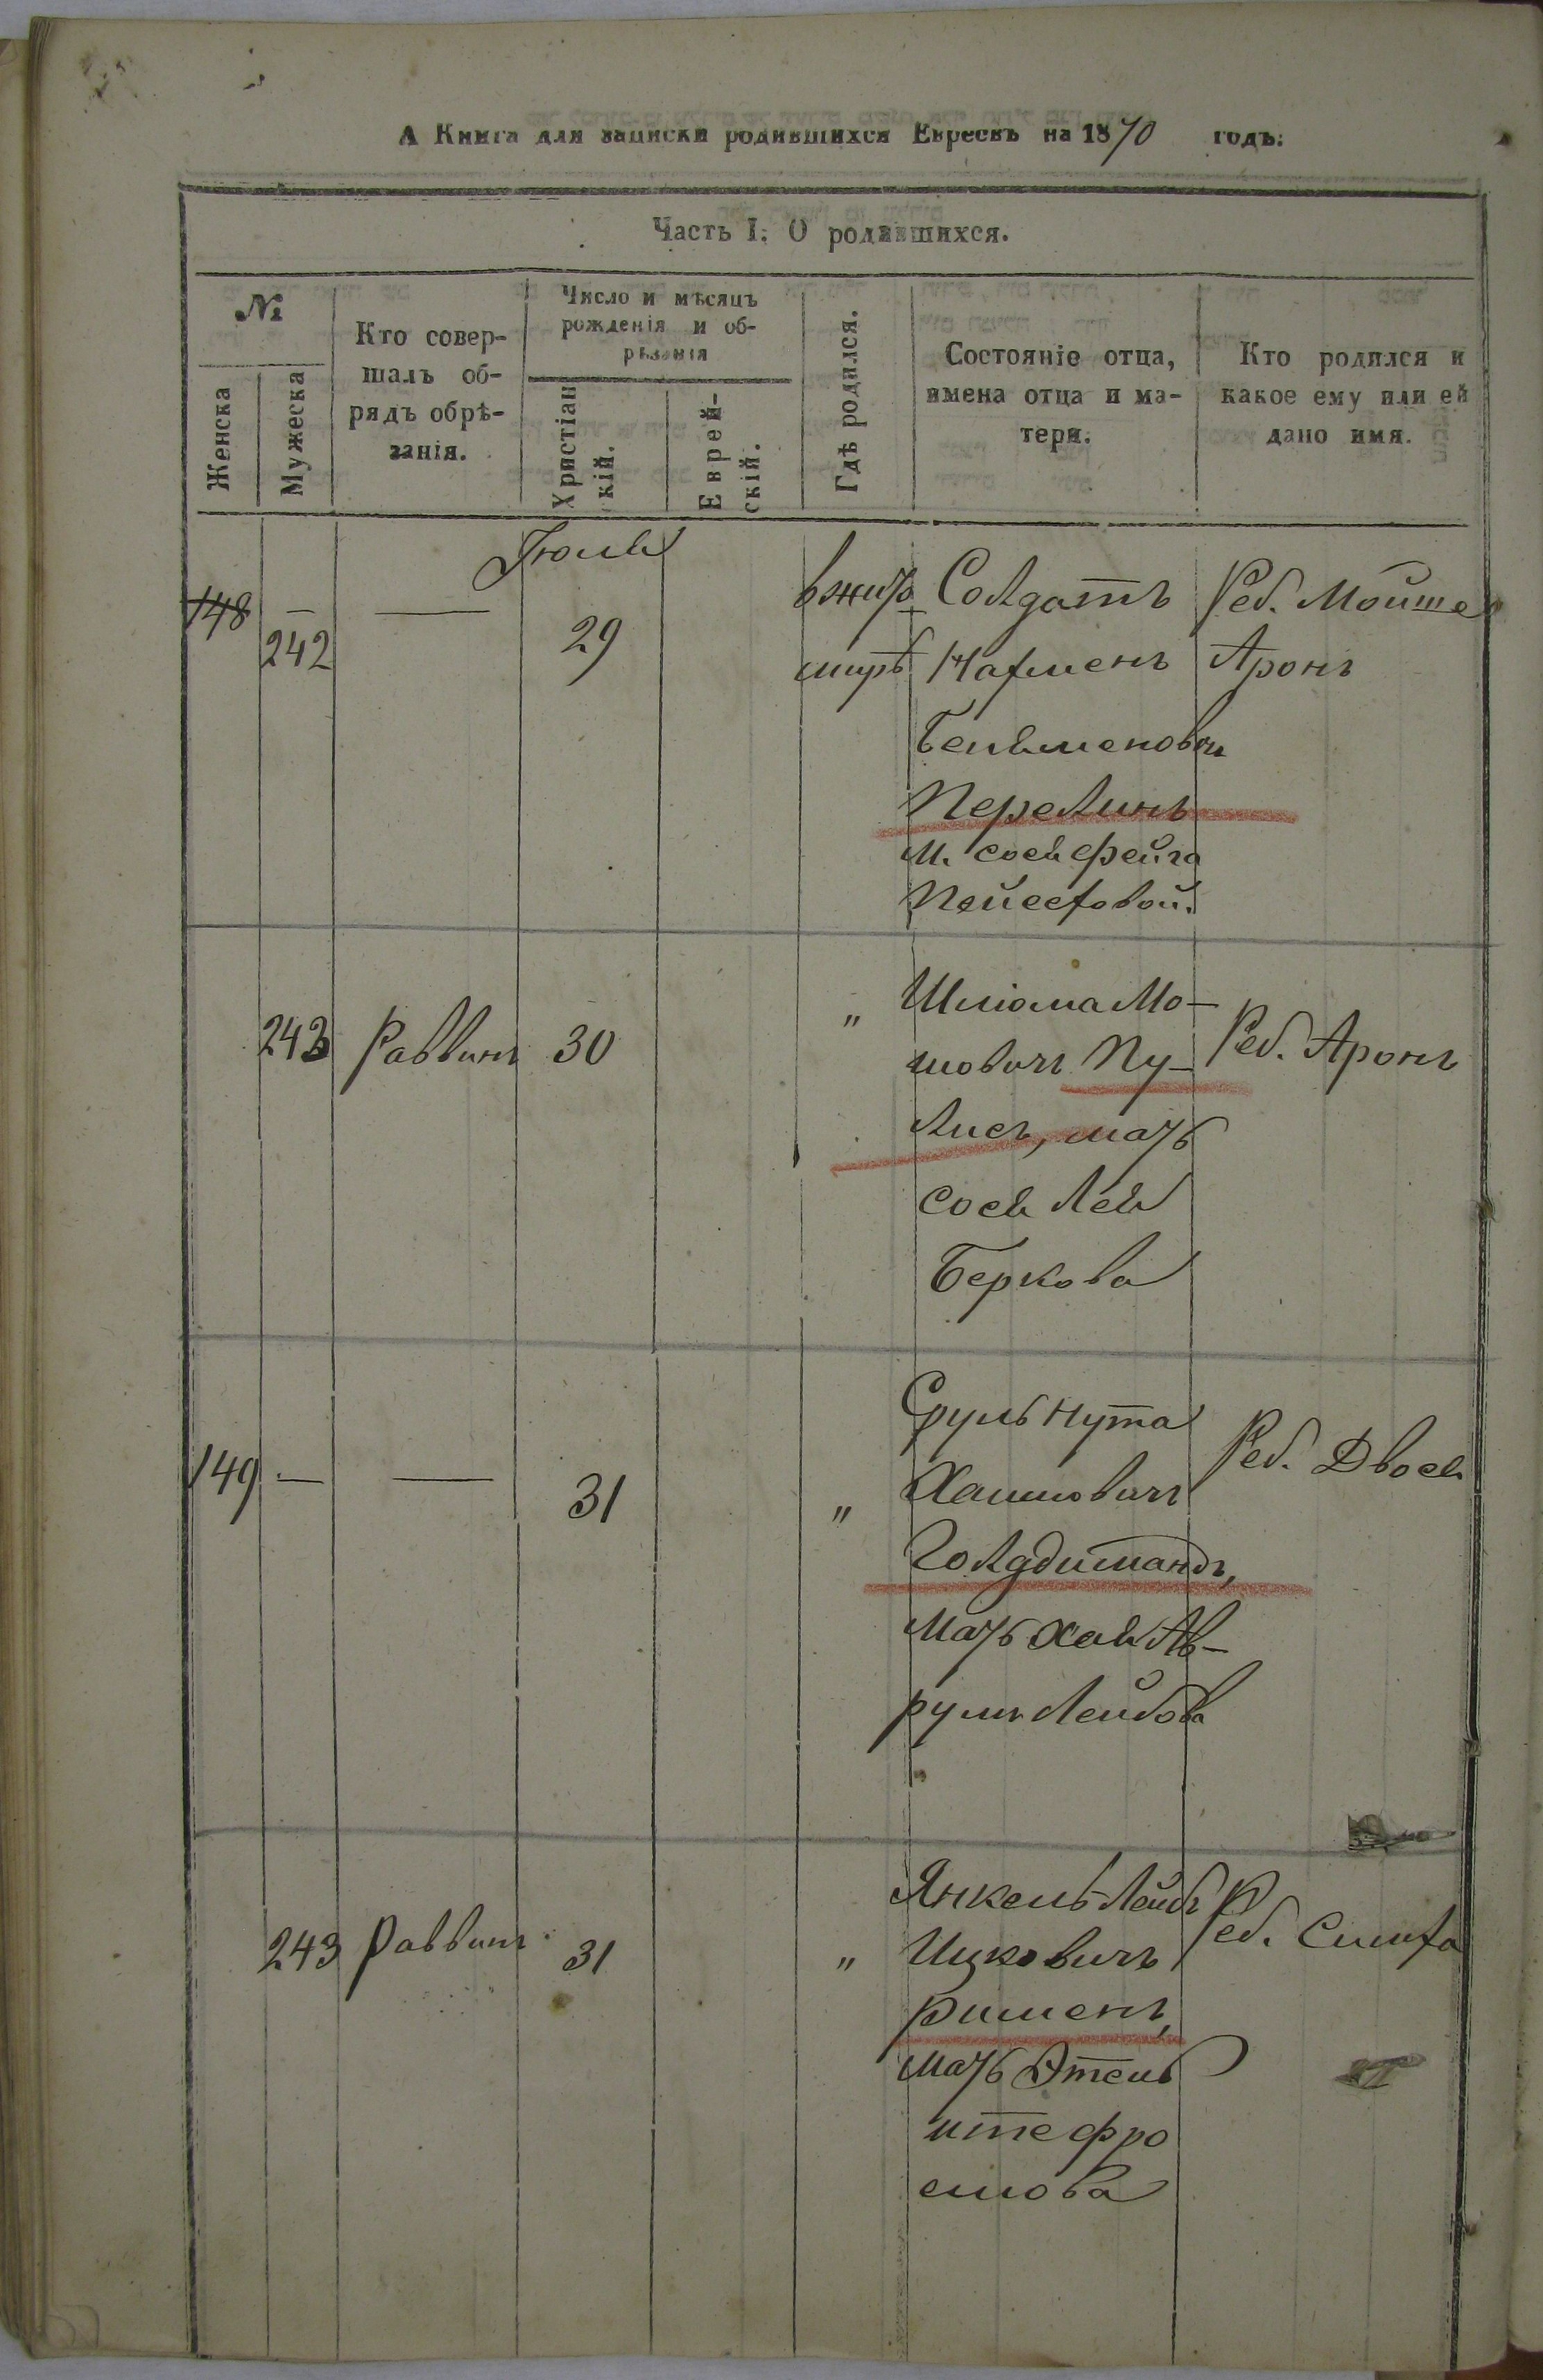 А Книга для записки родившихся Евреевъ на 1870 годъ.
Часть I. О родившихся.
№
Женска
Мужеска
Кто совер-
шалъ об-
рядъ обрѣ-
занія.
Число и мѣсяцъ
рожденія и об-
рѣзанія
Христіан
кій.
Еврей-
скій.
Гдѣ родился.
Состояніе отца,
имена отца и ма-
тери.
Кто родился и
какое ему или ей
дано имя.
Іюля
148 — 242 — 29
в жито
мирѣ
Солдатъ
Нахменъ
Беньменович
Перелинъ
м. Сося Фейга
Пейсеховой.
Реб. Мойше
Аронъ
243 Раввинъ 30 "
Шліома Мо-
шовичъ Пу-
лисъ, мать
Сося Лея
Беркова
Реб. Аронъ
149 — — 31 "
Сруль Нута
Хаимовичъ
Голддимандъ,
мать Хая Ав-
румъ Лейбова
Реб. Двося
243 Раввинъ 31 "
Янкель-Лейбъ
Ицковичъ
Рименъ,
мать Этель
Ите Фро
емова
Реб. Симха